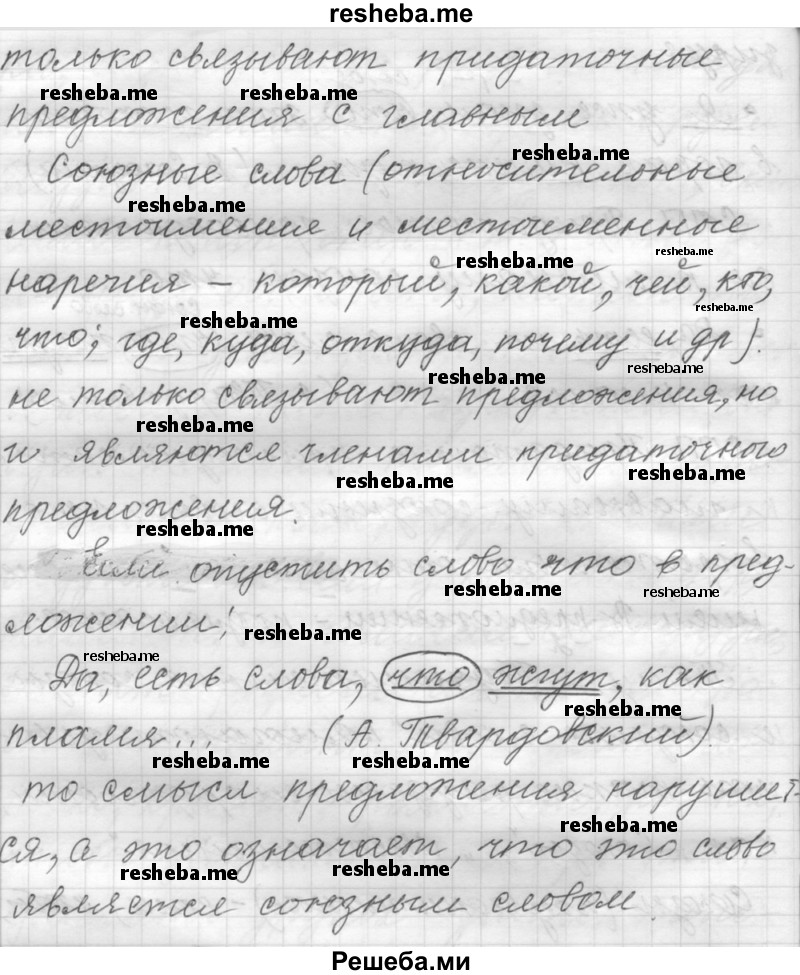 resheba.me
только связывают придаточные
resheba.me resheba.me
предложения с главным
resheba.me
Союзные слова (относительные
resheba.me
местоимения и местоименные
resheba.me resheba.me
наречия – который, какой, чей, кто,
resheba.me resheba.me
что; где, куда, откуда, почему и др).
resheba.me resheba.me
не только связывают предложения, но
resheba.me
и являются членами придаточного
resheba.me resheba.me
предложения.
resheba.me
Если опустить слово что в пред-
resheba.me resheba.me
ложении:
resheba.me
resheba.me
Да, есть слова, что жгут, как
resheba.me
пламя... (А Твардовский).
resheba.me resheba.me
то смысл предложения нарушит-
resheba.me
ся, а это означает, что это слово
resheba.me resheba.me
является союзным словом.
Решеба.ми